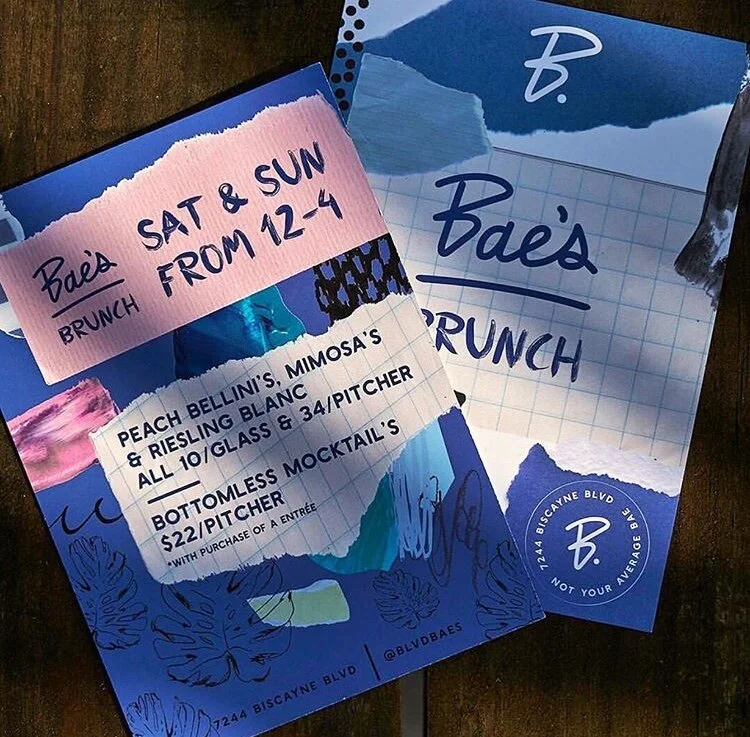 Bae's
BRUNCH
SAT & SUN
FROM 12-4
PEACH BELLINI'S, MIMOSA'S
& RIESLING BLANC
ALL 10/GLASS & 34/PITCHER
BOTTOMLESS MOCKTAIL'S
$22/PITCHER
*WITH PURCHASE OF A ENTRÉE
7244 BISCAYNE BLVD | @BLVDBAES
B.
Bae's
BRUNCH
7244 BISCAYNE BLVD
B.
NOT YOUR AVERAGE BAE